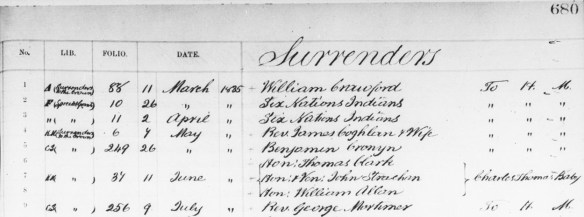 680
No. LIB. FOLIO. DATE. Surrenders
1 A (Surrenders to the Crown) 88 11 March 1835 William Crawford To H. M.
2 10 26 " " Six Nations Indians " " "
3 " (" ") 11 2 April " Six Nations Indians " " "
4 (Surrenders to the Crown) 6 9 May " Rev. James Coghlan & Wife " " "
5 " ) 249 26 " " Benjamin Cronyn " " "
6 Hon: Thomas Clark
7 " ) 37 11 June " Hon: & Ven: John Strachan Charles Thomas Baby
8 Hon: William Allan
9 " ) 256 9 July " Rev. George Mortimer To H. M.